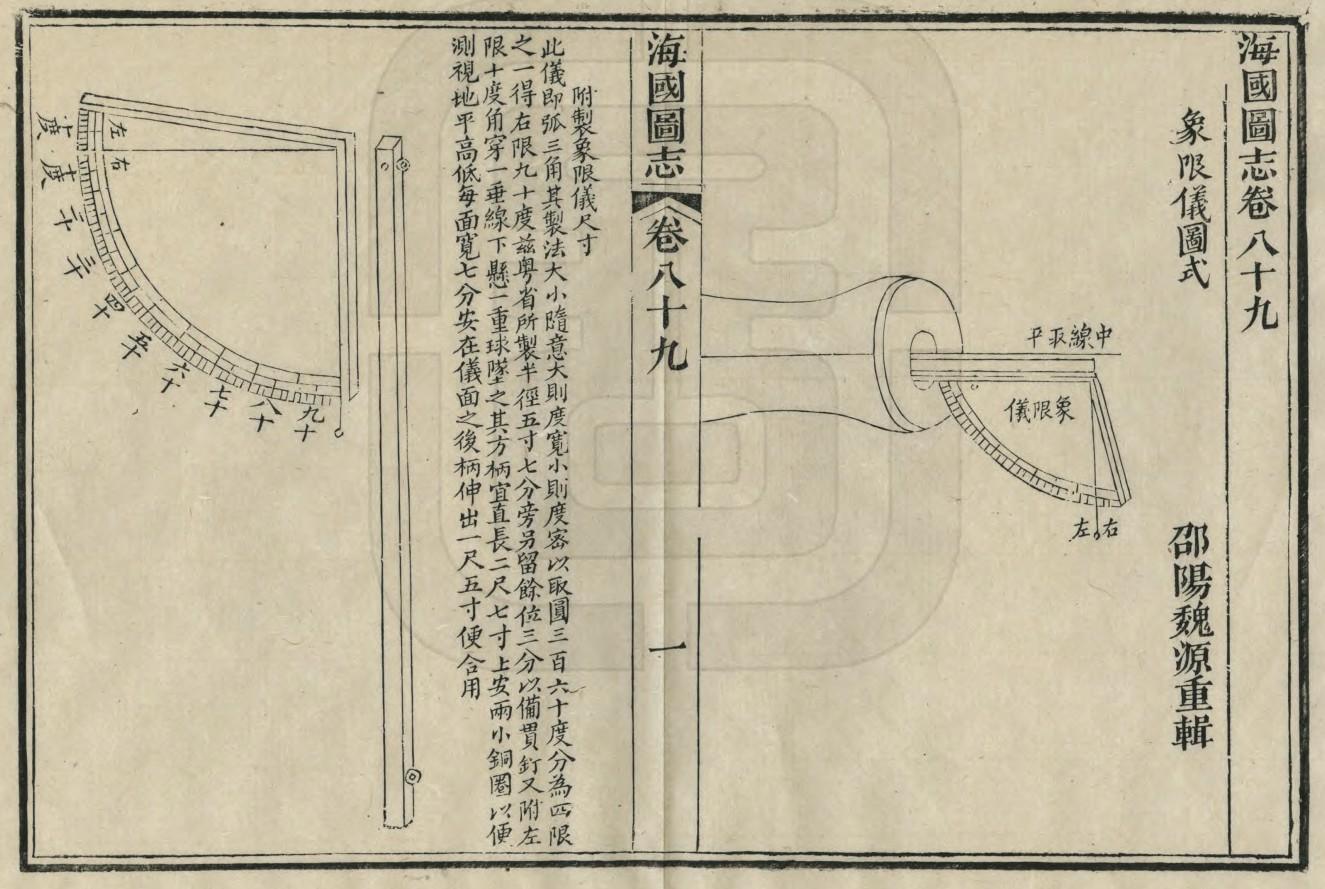 海國圖志卷八十九
邵陽魏源重輯
象限儀圖式
中線取平
象限儀
左
右
海國圖志
卷八十九
一
附製象限儀尺寸
此儀即弧三角其製法大小隨意大則度寬小則度密以取圓三百六十度分為四限
之一得右限九十度茲粵省所製半徑五寸七分旁另留餘位三分以備貫釘又附左
限十度角穿一垂線下懸一重球墜之其方柄宜直長二尺七寸上安兩小銅圈以便
測視地平高低每面寬七分安在儀面之後柄伸出一尺五寸便合用
左
右
十度
二十
三十
四十
五十
六十
七十
八十
九十